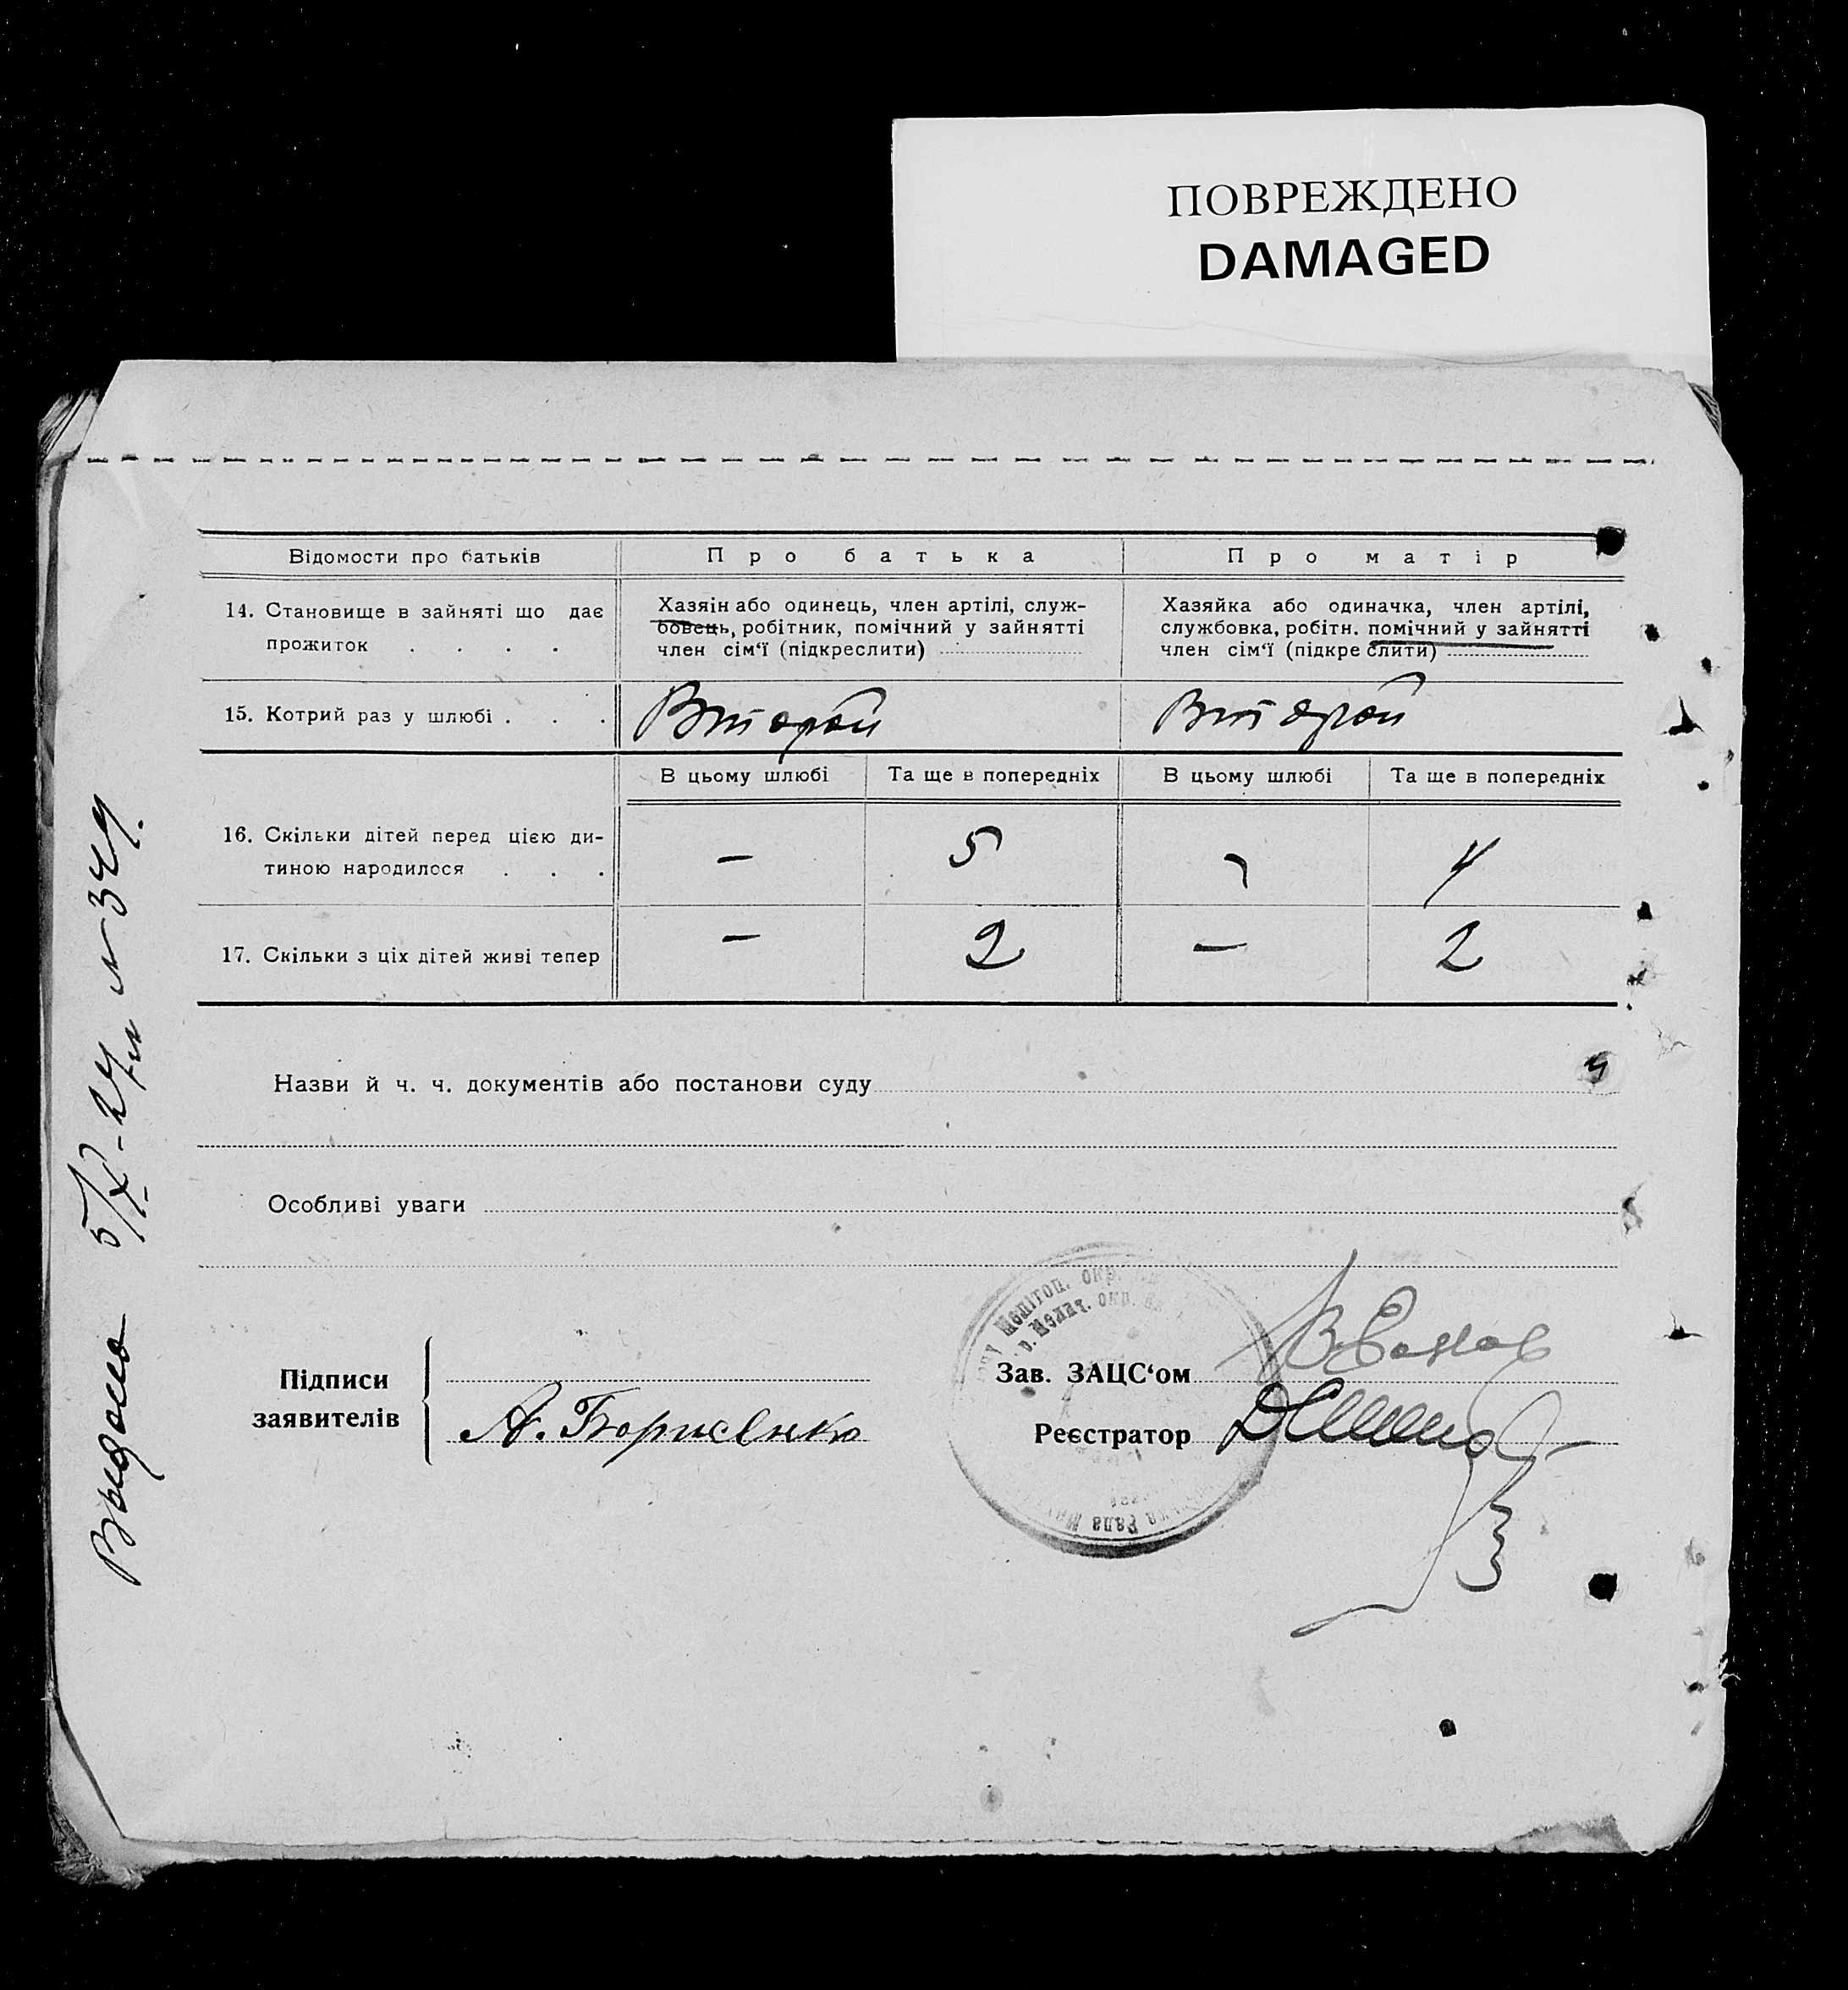 ПОВРЕЖДЕНО
DAMAGED
Відомости про батьків
Про батька
Про матір
14. Становище в зайняті що дає
прожиток . . . .
Хазяін або одинець, член артілі, служ-
бовець, робітник, помічний у зайнятті
член сім‘ї (підкреслити)
Хазяйка або одиначка, член артілі,
службовка, робітн. помічний у зайнятті
член сім‘ї (підкре слити)
15. Котрий раз у шлюбі . . .
Второй
Второй
В цьому шлюбі
Та ще в попередніх
В цьому шлюбі
Та ще в попередніх
16. Скільки дітей перед цією ди-
тиною народилося . . .
— 5 — 4
17. Скільки з ціх дітей живі тепер
— 2 — 2
Назви й ч. ч. документів або постанови суду
Особливі уваги
Підписи
заявителів
А. Борисенко
Зав. ЗАЦС‘ом
Реєстратор
Мелітоп. окр.
р. Мелит. окр.
Рада
Выдано 5/X-27